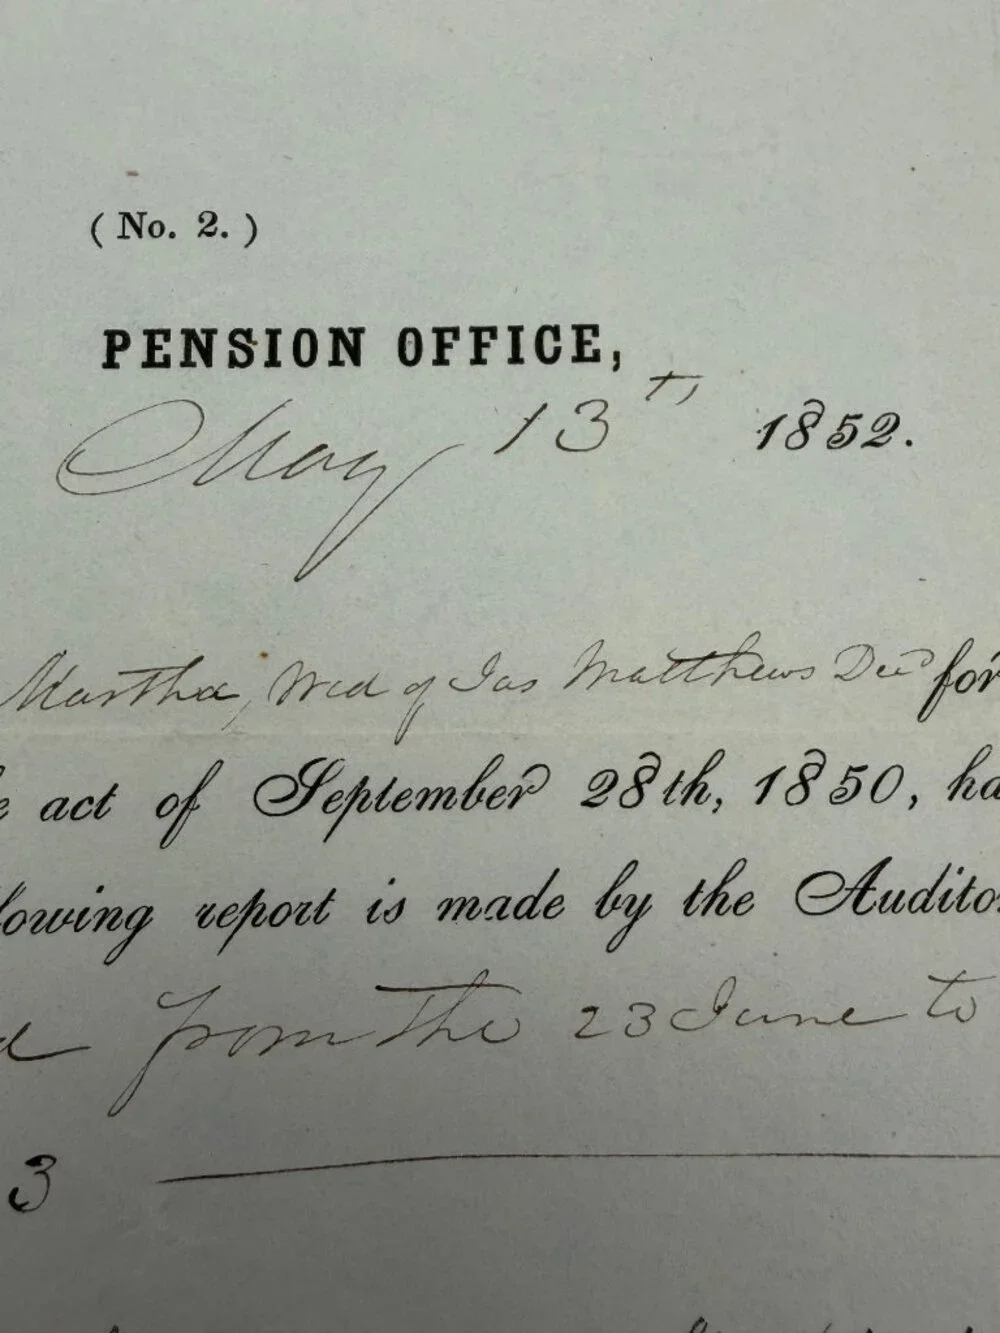 ( No. 2. )
PENSION OFFICE,
May 13th 1852.
Martha, Wid of Jas Matthews Decd for
e act of September 28th, 1850, ha
lowing report is made by the Auditor
d from the 23 June to
3